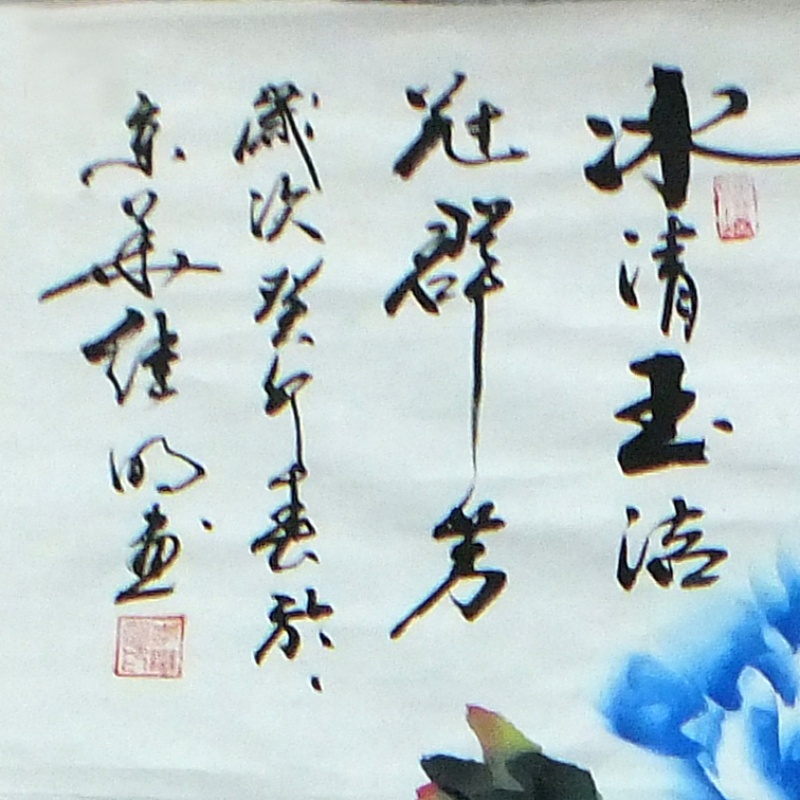 冰清玉洁
冠群芳
岁次癸卯春於
京华继明画